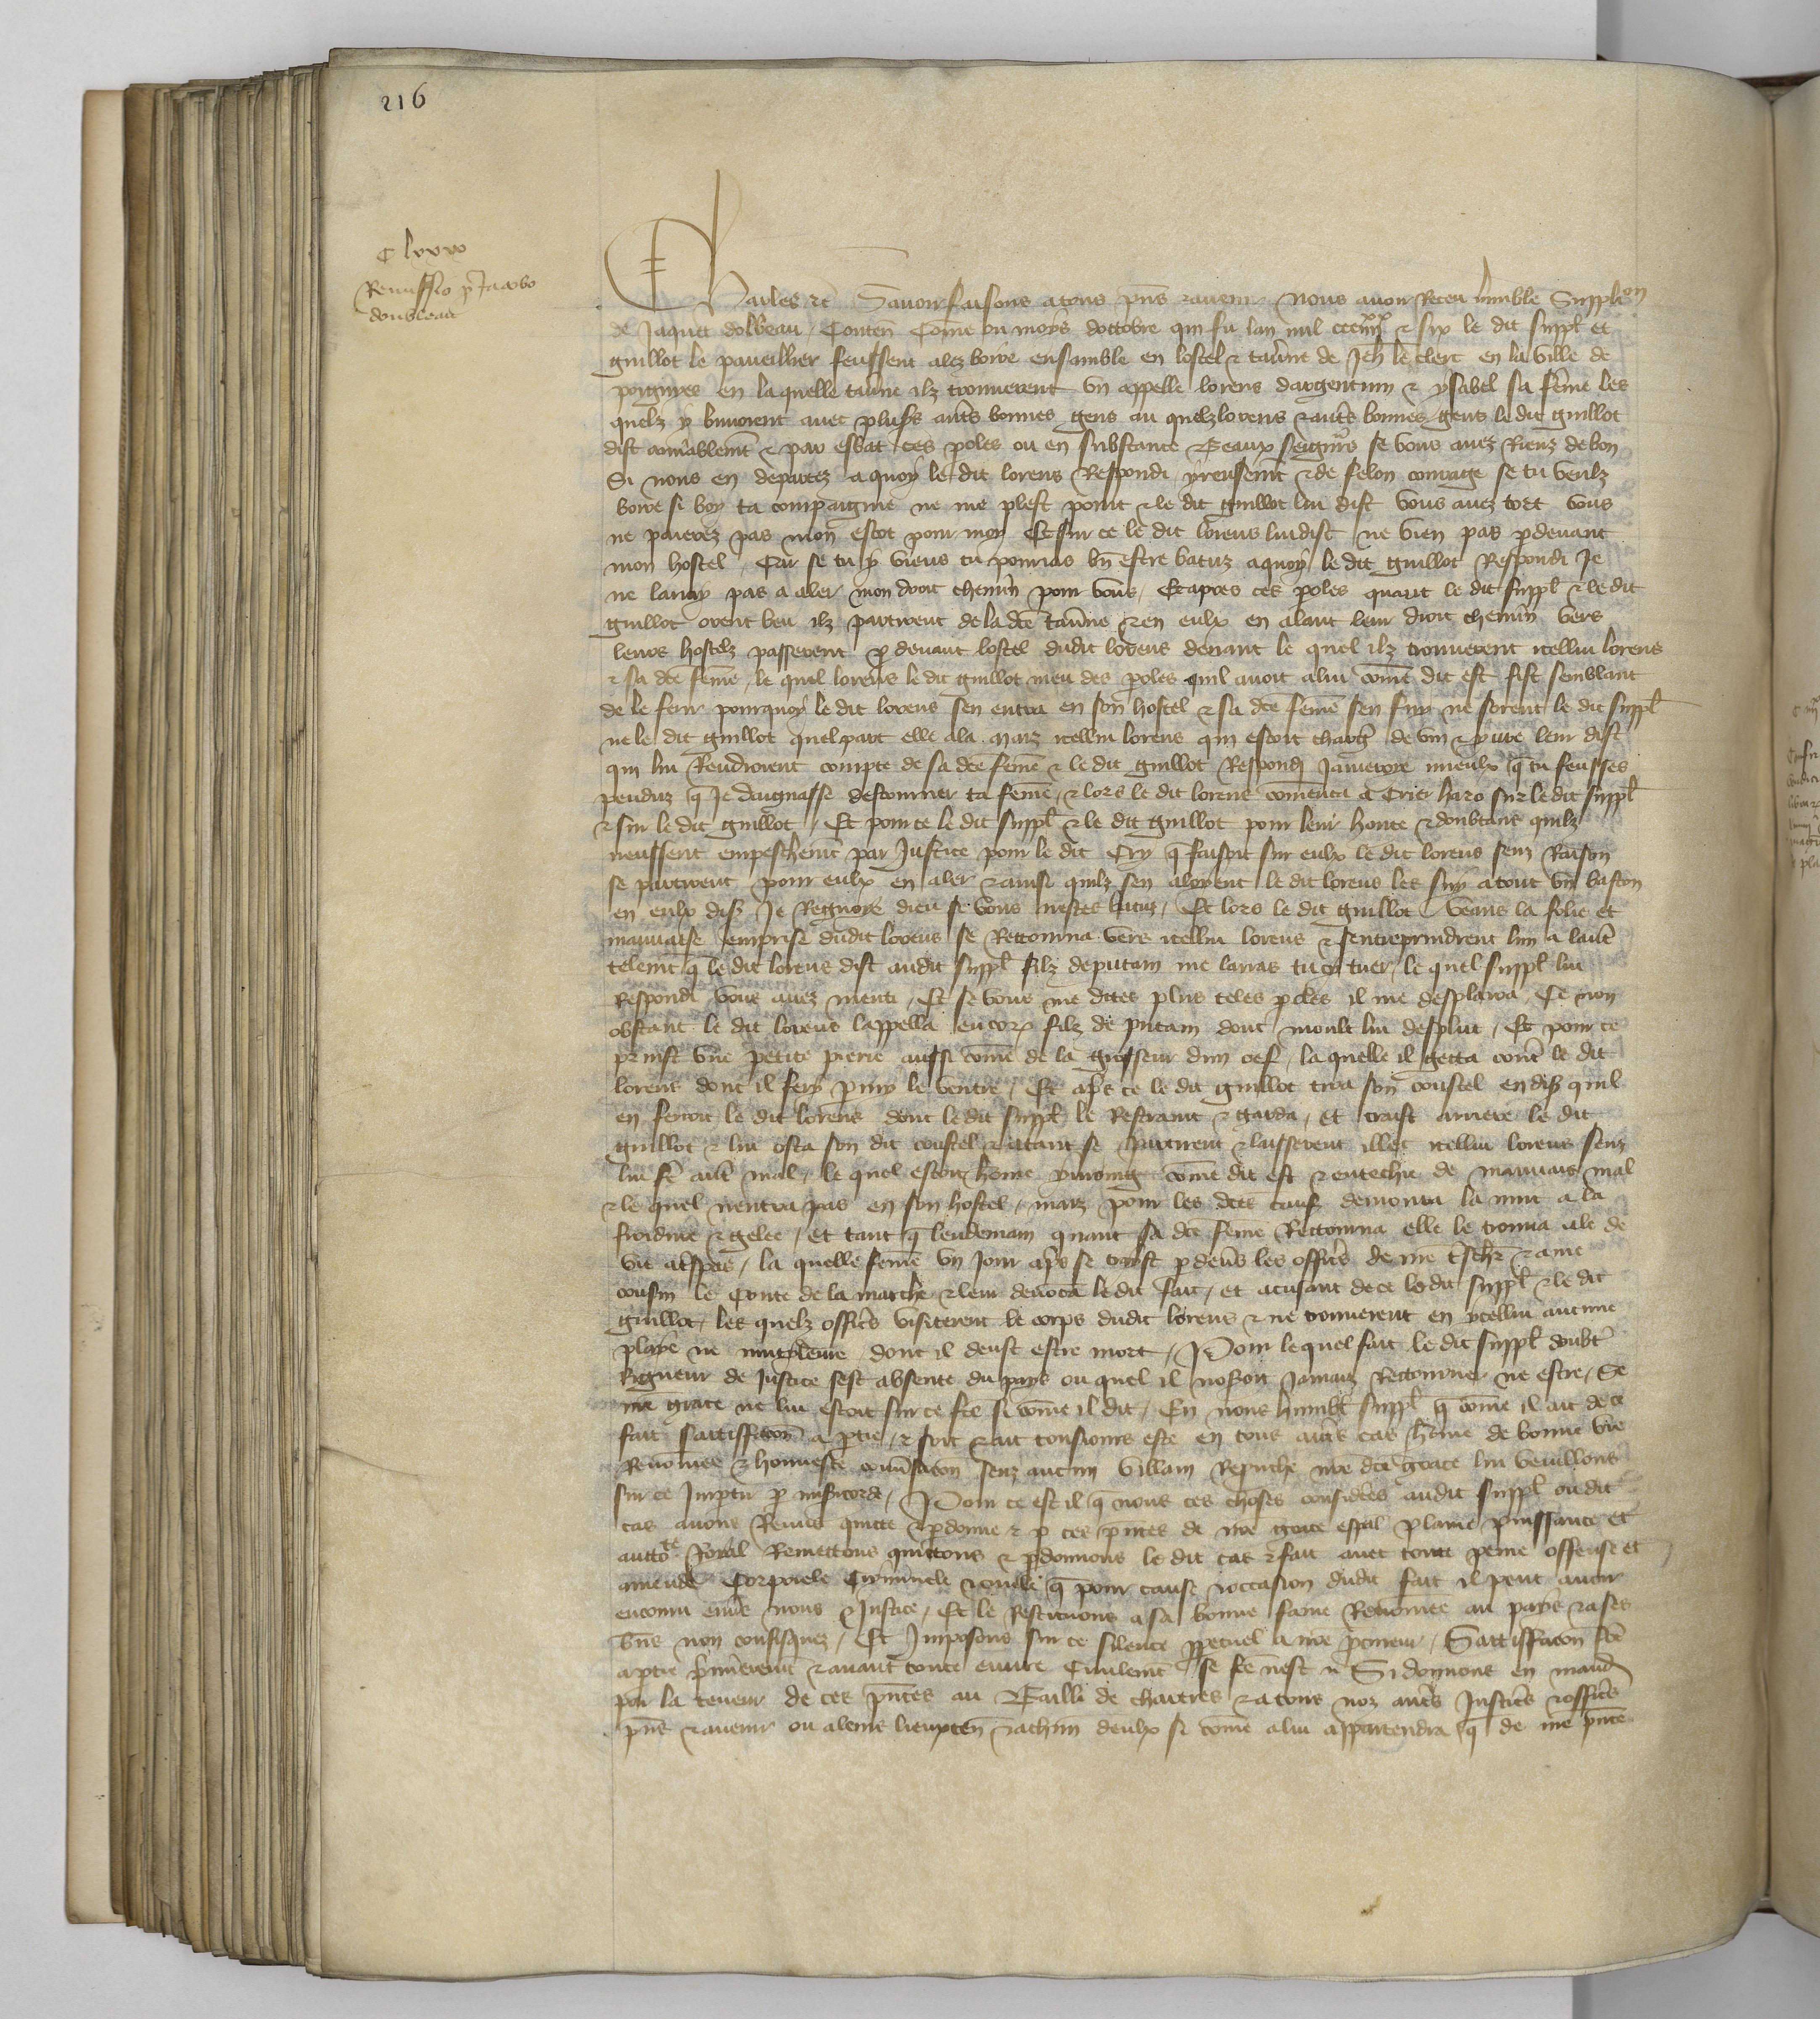 216
C lxxv
Remissio p Jacobo
doubleau
Charles etc Savoir faisons a tous pns et avenir Nous avoir Receu lumble Supplion
de Jaquet dolbeau Conten Come ou moys doctobre qui fu lan mil ccc iiiixx et six le dit suppl et
guillot le paveillier feussent alez boire ensamble en lostel et tavne de Jeh le clerc en la ville de
en la quelle tavne ilz trouverent un appelle lorens dargentum et ysabel sa feme les
quelz y buvoient avec plus auts bonnes gens au quelz lorens et auts bonnes gens le dit guillot
dist amablemt et par esbat ces poles ou en substance Beaux seignrs se vous avez Riens de bon
Si nous en departez a quoy le dit lorens Respondi yreusemt et de felon courage se tu veulz
boire si boy ta compaignie ne me plest point et le dit guillot lui dist vous avez tort vous
ne paierez pas mon escot pour moy Et sur ce le dit lorens lui dist ne vien pas p devant
mon hostel Car se tu y viens tu pourras bn estre batuz a quoy le dit guillot Respondi Je
ne lairay pas a aler mon droit chemin pour vous Et apres ces poles quant le dit suppl et le dit
guillot orent beu ilz partirent de la dce tavne et en eulx en alant leur droit chemin vers
leurs hostelz passerent p devant lostel dudit lorens devant le quel ilz trouverent icellui lorens
et sa dce feme le quel lorens le dit guillot meu des poles quil avoit a lui come dit est fist semblant
de le ferir pourquoy le dit lorens sen entra en son hostel et sa dce feme sen fuy ne sorent le dit suppl
ne le dit guillot quel part elle ala Maiz icellui lorens qui estoit charg de vin et yure leur dist
qui lui Rendroient compte de sa dce feme et le dit guillot Respondi Jameroye mieulx q tu feusses
penduz q Je daignasse destourner ta feme et lors le dit lorens comenca a Crier haro sur le dit suppl
et sur le dit guillot Et pour ce le dit suppl et le dit guillot pour leur honte et doubtans quilz
neussent empeschemt par Justice pour le dit Cry q faisoit sur eulx le dit lorens senz Raison
se partirent pour eulx en aler et ainsi quilz sen aloyent le dit lorens les suy a tout un baston
en eulx dis Je Regnoye dieu se vous nestes batuz Et lors le dit guillot veans la folie et
mauvaise emprise dudit lorens se Retourna vers icellui lorens et sentreprindrent lun a laut
telemt q le dit lorens dist audit suppl filz de putain me lairas tu tuer le quel suppl lui
Respondi vous avez menti Et se vous me dites plus teles poles il me desplaira Ce non
obstant le dit lorens lappella encor filz de putain dont moult lui desplut Et pour ce
print une petite pierre aussi come de la grosseur dun oef la quelle il getta cont le dit
lorens dont il fery pmy le ventre Et aps ce le dit guillot tira son coustel en dis quil
en ferroit le dit lorens dont le dit suppl le Restraint et garda et traist arriere le dit
guillot et lui osta son dit coustel et atant se partirent et laisserent illec icellui lorens senz
lui fe aut mal le quel estoit home yvroing come dit est et entechie de mauvais mal
et le quel nentra pas en son hostel maiz pour les dces caus demoura la nuit a la
froidure et gelee et tant q lendemain quant sa dce feme Retourna elle le trouva ale de
vie a trespas la quelle feme un Jour aps se traist p devs les offics de nre tschr et ame
cousin le Conte de la marche et leur denoca le dit fait et acusant de ce le dit suppl et le dit
guillot les quelz offics visiterent le corps dudit lorens et ne trouverent en ycellui aucune
playe ne mutileure dont il deust estre mort Pour le quel fait le dit suppl doubt
Rigueur de Justice sest absente du pays ou quel il noseroit Jamaiz Retourner ne estre Se
nre grace ne lui estoit sur ce fce si come il dit En nous humblt suppl q come il ait de ce
fait sattisffacon a ptie et soit et ait tousiours este en tous auts cas home de bonne vie
Renomee et honneste convsacon senz aucun villain Reprche nre dce grace lui veuillons
sur ce Imptir p misicorde Pour ce est il q nous ces choses considees audit suppl ou dit
cas avons Remis quitte et pdonne et p ces pntes de nre grace espal plaine puissance et
auctote Royal Remettons quittons et pdonnons le dit cas et fait avec toute peine offense et
amende Corporele Criminele et civile q pour cause et occasion dudit fait il peut avoir
encouru envs nous et Justice Et le Restituons a sa bonne fame Renomee au pays et a ses
bns non confisquez Et Imposons sur ce silence ppetuel a nre pcureur Sattisffacon fce
a ptie pmieremt et avant toute euvre Civilemt se fce nest Si donnons en mand
par la teneur de ces pntes au Bailli de chartres et a tous noz auts Justics et offics
pns et avenir ou a leurs lieuxten et a chun deulx si come a lui appartendra q de nre pnte